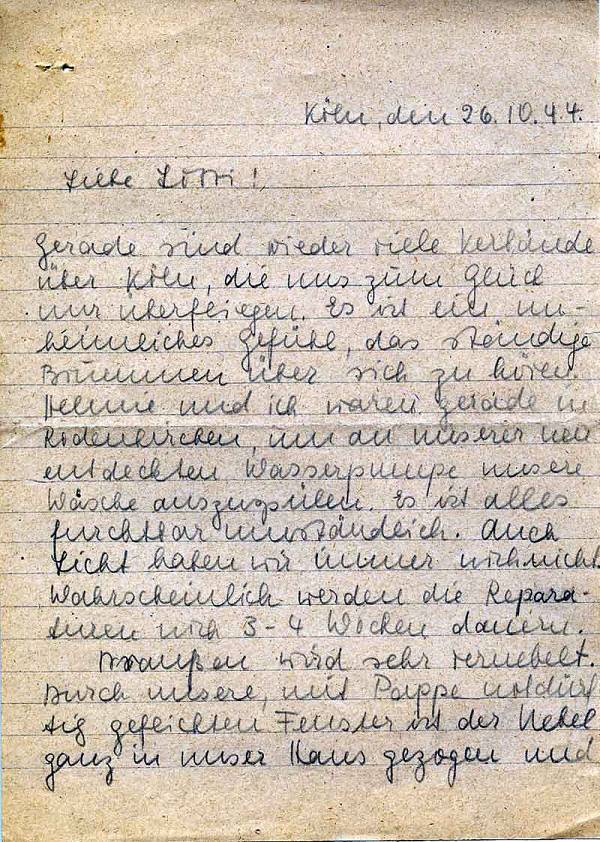 Köln, den 26.10.44.
Liebe Lotti!
Gerade sind wieder viele Verbände
über Köln, die uns zum Glück
nur überfliegen. Es ist ein un-
heimliches Gefühl, das ständige
Brummen über sich zu hören.
und ich waren gerade in
Rodenkirchen, um an unserer neu
entdeckten Wasserpumpe unsere
Wäsche auszuspülen. Es ist alles
furchtbar umständlich. Auch
Licht haben wir immer noch nicht.
Wahrscheinlich werden die Repara-
turen noch 3-4 Wochen dauern.
Draußen wird sehr vernebelt.
Durch unsere, mit Pappe notdürf
tig geflickten Fenster ist der Nebel
ganz in unser Haus gezogen und